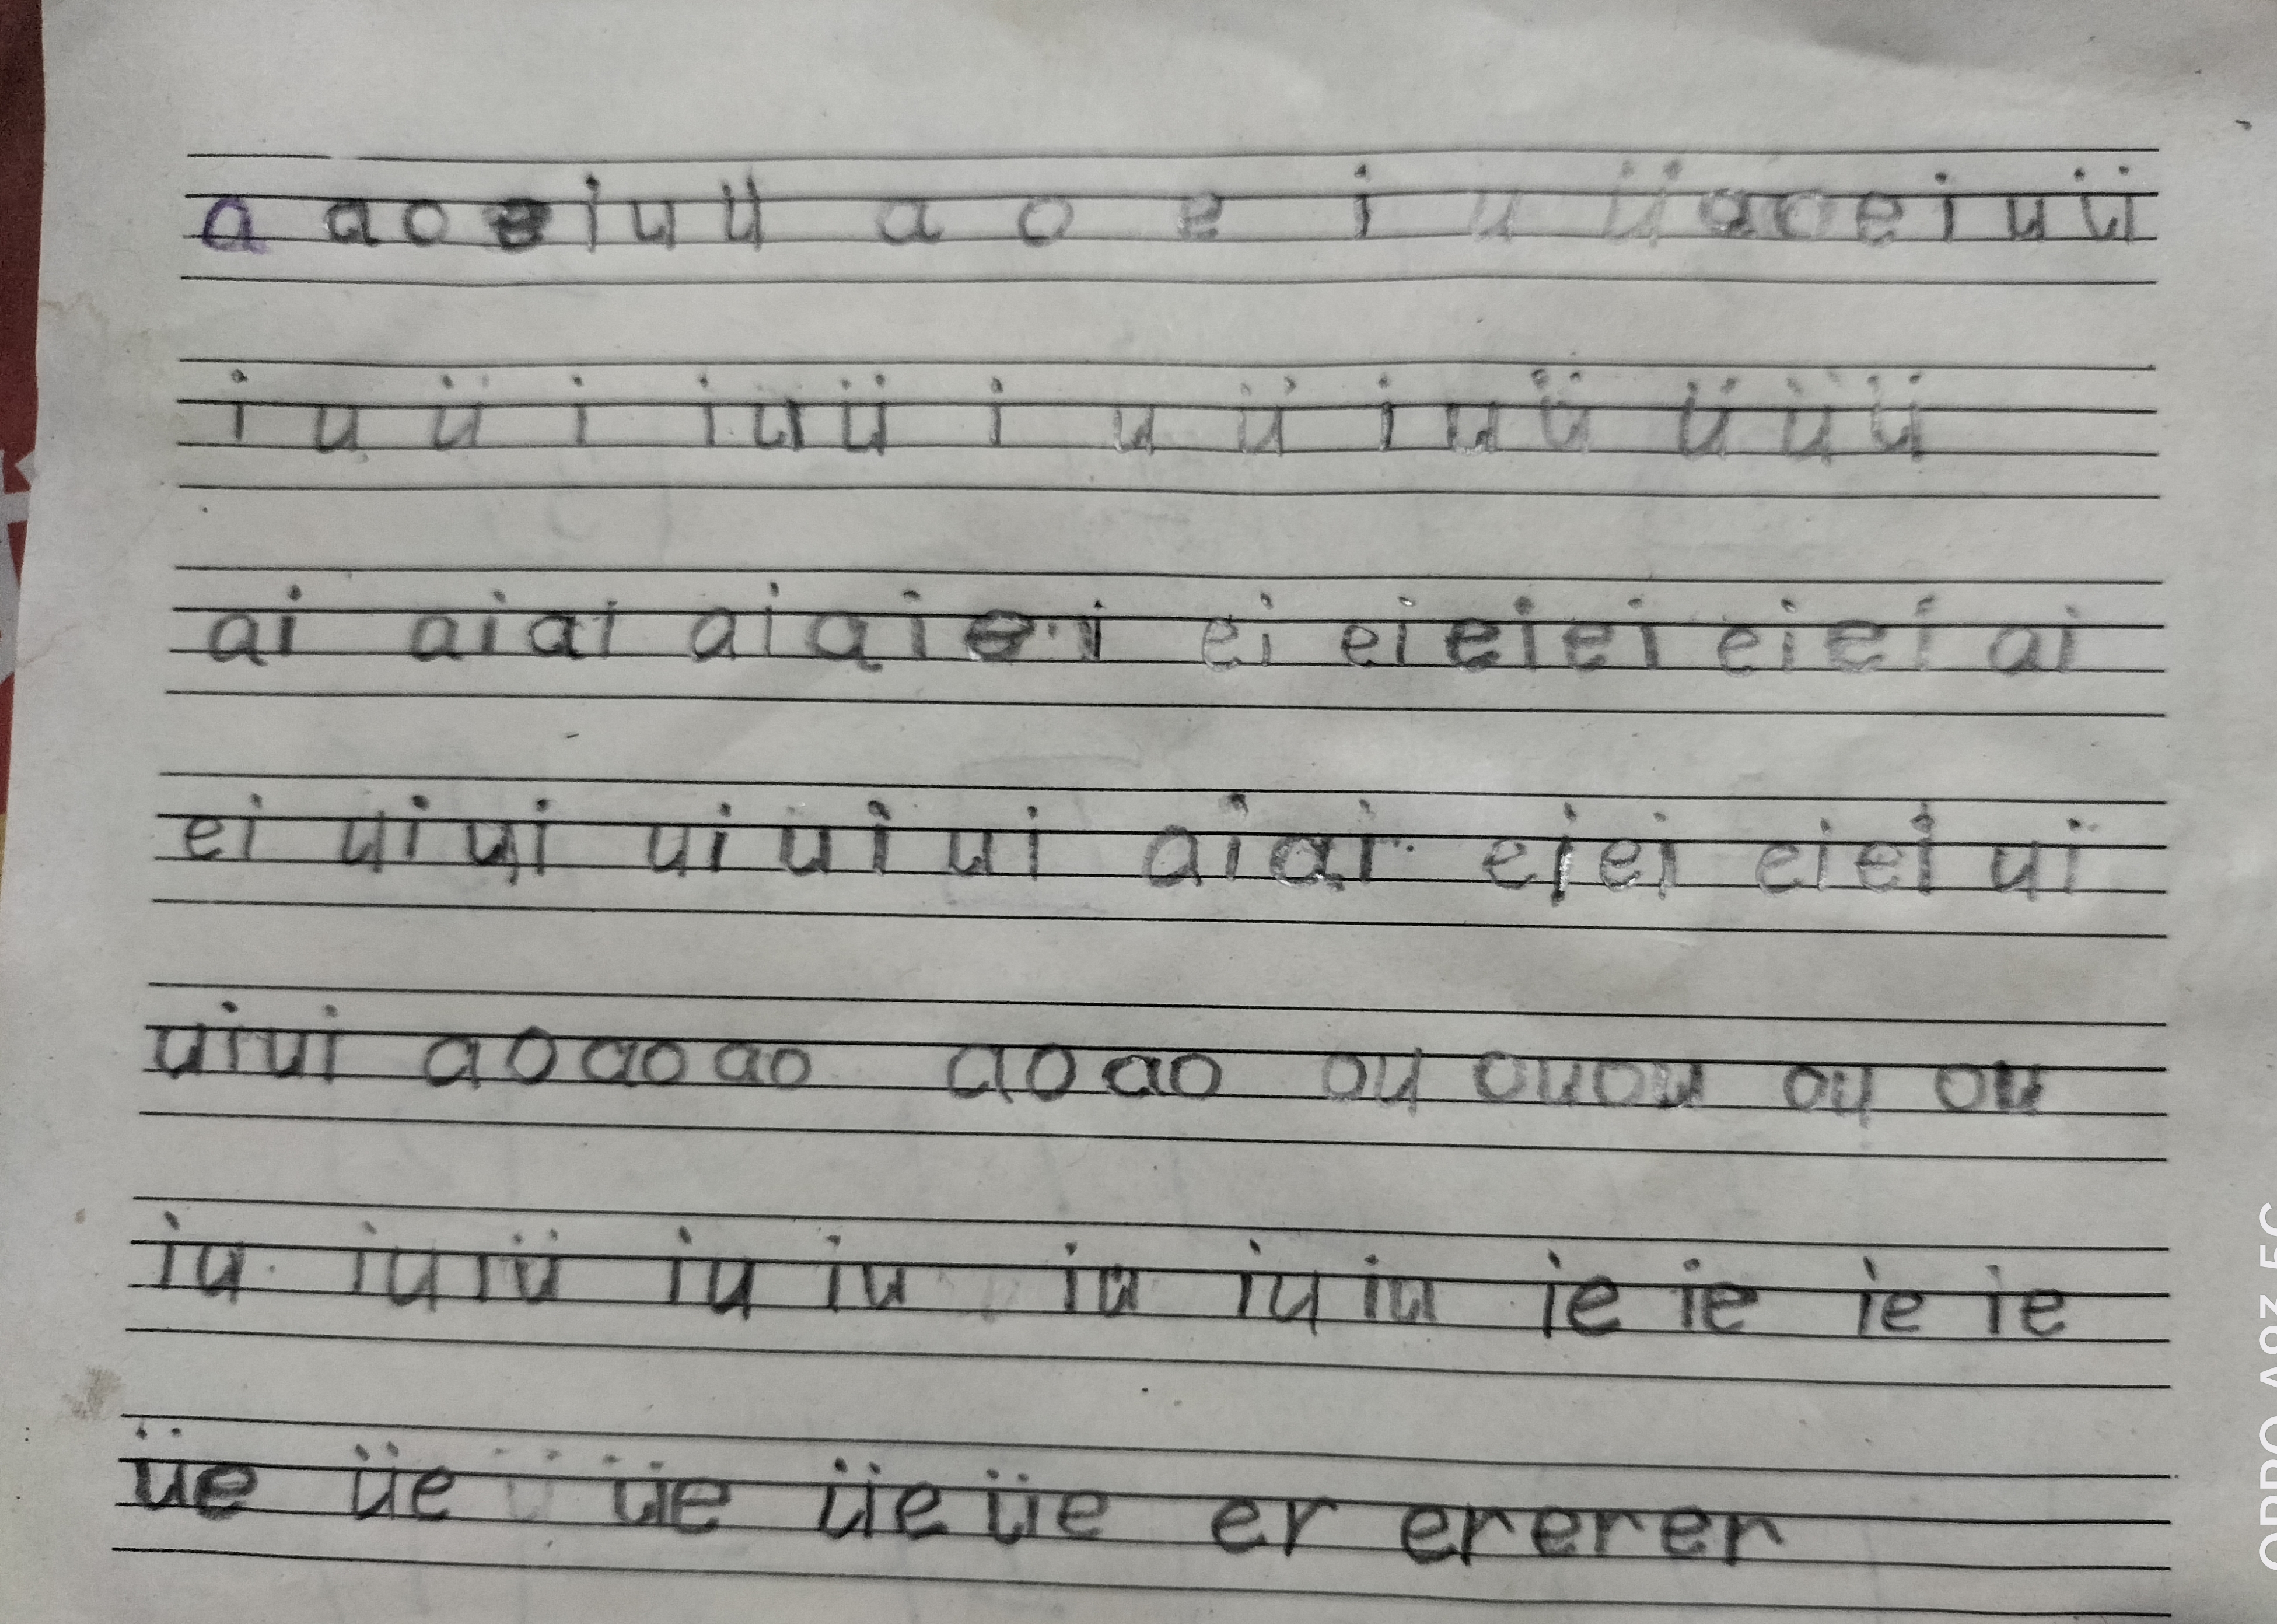 a a o e i u ü a o e i u ü a o e i u ü
i u ü i i u ü i u ü i u ü ü ü ü
ai ai ai ai ai ei ei ei ei ei ei ei ai
ei ui ui ui ui ui ai ai ei ei ei ei ui
ui ui ao ao ao ao ao ou ou ou ou ou
iu iu iü iu iu iu iu iu ie ie ie ie
üe üe ü üe üe üe er er er er